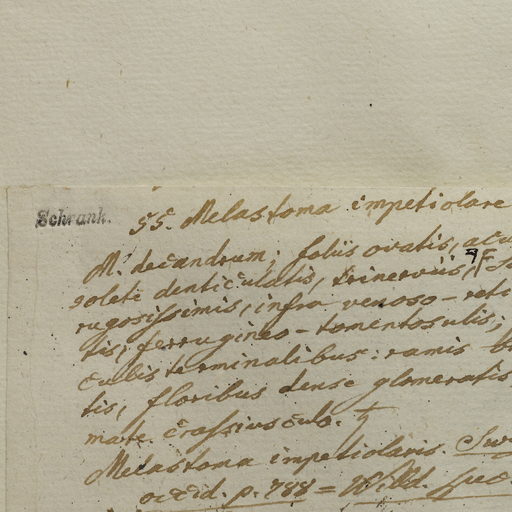 Schrank.
55. Melastoma impetiolare
M. decandrum; foliis ovatis,
soleti denticulatis, trinerviis,
rugosissimis, infra venoso-reti
tis, ferrugineo-tomentosulis;
culis terminalibus: ramis
tis, floribus dense glomeratis,
mate crassiusculo. ♄
Melastoma impetiolaris. Sw
occid. p. 788 = Willd. spec.